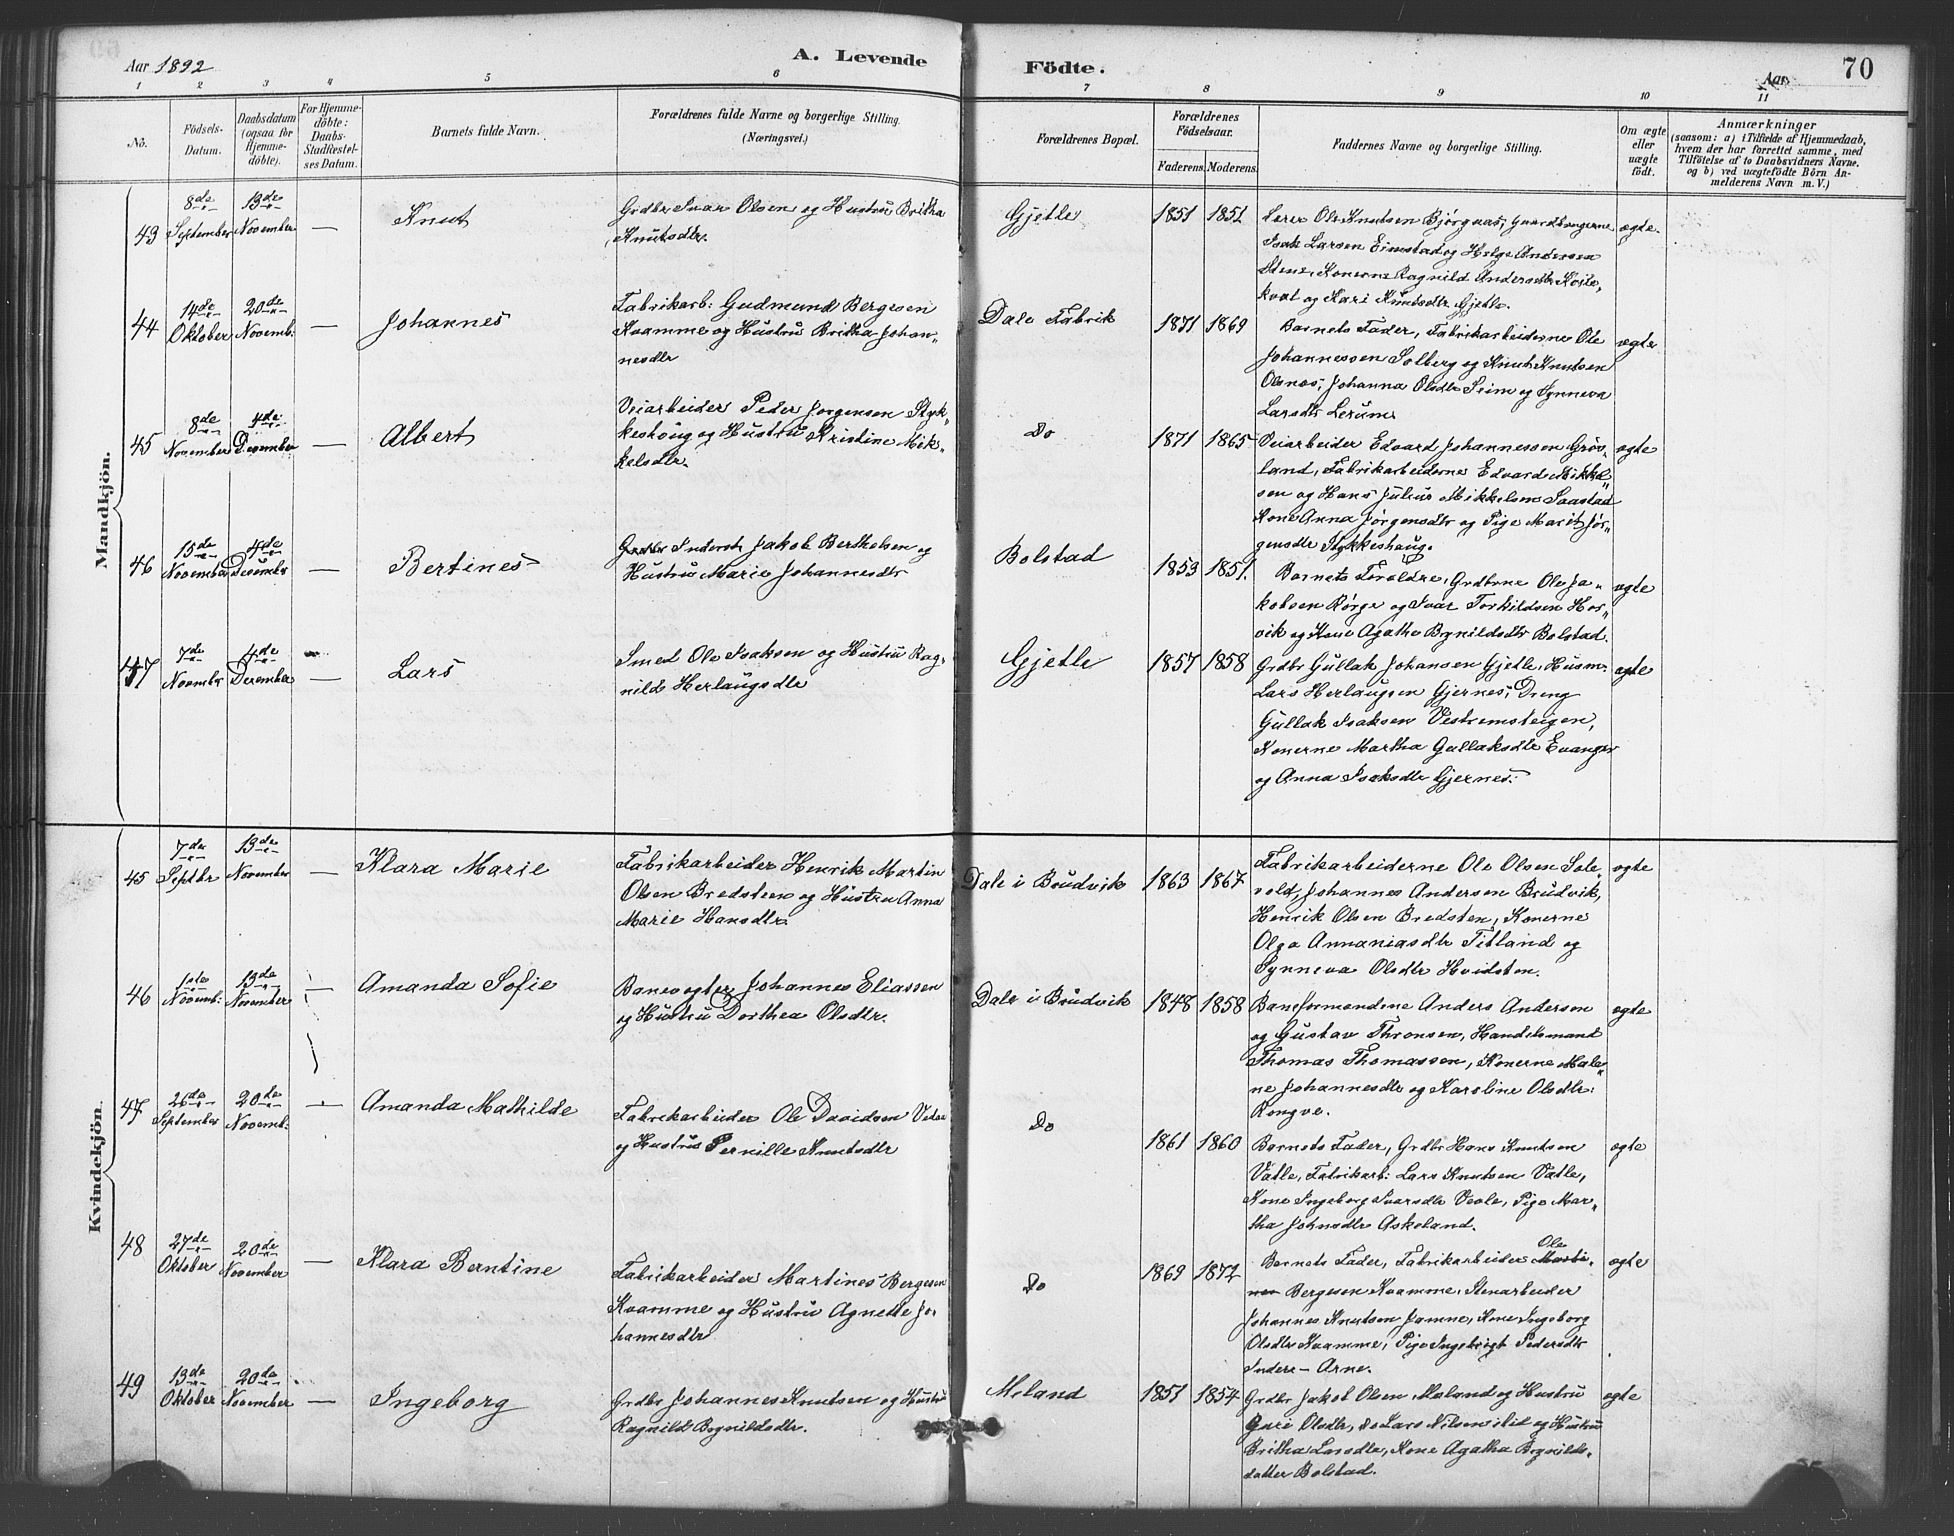 Aar 1892
A. Levende
Födte.
Aar
70
1 2 3 4 5 6 7 8 9 10 11
No.
Födsels-
Datum.
Daabsdatum
(ogsaa for
Hjemme-
döbte).
For Hjemme-
döbte:
Daabs-
Stadfæstel-
ses Datum.
Barnets fulde Navn.
Forældrenes fulde Navne og borgerlige Stilling.
(Næringsvei.)
Forældrenes Bopæl.
Forældrenes
Födselsaar.
Faderens. Moderens.
Faddernes Navne og borgerlige Stilling.
Om ægte
eller
uægte
födt.
Anmærkninger
(saasom: a) i Tilfælde af Hjemmedaab,
hvem der har forrettet samme, med
Tilföielse af to Daabsvidners Navne,
og b) ved uægtefödte Börn An-
melderens Navn m. V.)
Mandkjön.
43
8de
September
13de
November
—
Knut
Grdbr Ivar Olsen og Hustru Britha
Knutsdtr.
Gjetle
1851 1851
Lærer Ole Knutsen Bjørgaas, Gaardbrugerne
Isak Larsen Eimstad og Helge Andersen
Stene, Konerne Ragnild Andersdtr
og Kari Knutsdtr Gjetle.
ægte.
44
14de
Oktober
20de
Novemb:
—
Johannes
Fabrikarb: Gudmund Bergesen
Kvamme og Hustru Britha Johan„
nesdtr
Dale Fabrik
1871 1869
Barnets Fader, Fabrikarbeiderne Ole
Johannessen Solberg og Knut Knutsen
Olsnes, Johanna Olsdtr Seim og Synneva
Larsdtr Lerum
ægte
45
8de
November
4de
December
—
Albert
Veiarbeider Peder Jørgensen Styk„
keshoug og Hustru Kristine Mik„
kelsdtr.
Do
1871 1865
Veiarbeider Edvard Johannessen Grøv„
land, Fabrikarbeiderne Edvard Mikkel„
sen og Hans Julius Mikkelsen Saastad
Kone Anna Jørgensdtr og Pige Marit Jør„
gensdtr Stykkeshaug.
ægte
46
15de
November
4de
Decembr
—
Bertines
Grdbr Inderst Jakob Berthelsen og
Hustru Marie Johannesdtr
Bolstad
1853 1851.
Barnets Forældre, Grdbrne Ole Ja„
kobsen Rørge og Ivar Torkildsen Hor„
vik og Kone Agathe Brynildsdtr Bolstad.
ægte
47
7de
Novembr
4de
December
—
Lars
Smed Ole Isaksen og Hustru Rag„
nild Herlaugsdtr
Gjetle
1857 1858
Grdbr Gullak Johansen Gjetle, Husm.
Lars Herlaugsen Gjernes, Dreng
Gullak Isaksen Vestremsteigen,
Konerne Martha Gullaksdtr Evanger
og Anna Isaksdtr Gjernes.
ægte
Kvindekjön.
45
7de
Septbr
13de
November
—
Klara Marie
Fabrikarbeider Henrik Martin
Olsen Bredsteen og Hustru Anna
Marie Hansdtr.
Dale i Brudvik
1863 1867
Fabrikarbeiderne Ole Olsen Sole„
vold, Johannes Andersen Brudvik,
Henrik Olsen Bredsten, Konerne
Olga Annaniasdtr Titland og
Synneva Olsdtr Hvidsten.
ægte
46
1ste
Novemb:
13de
November
—
Amanda Sofie
Banevogter Johannes Eliassen
og Hustru Dorthea Olsdtr.
Dale i Brudvik
1848 1858
Baneformændene Anders Andersen
og Gustav Thronsen, Handelsmand
Thomas Thomassen, Konerne Male„
ne Johannesdtr og Karoline Olsdtr.
Rongve.
ægte
47
26de
September
20de
Novemb:
—
Amanda Mathilde
Fabrikarbeider Ole Davidsen
og Hustru Pernille Knutsdtr
Do
1861 1860
Barnets Fader, Grdbr Hans Knutsen
Vatle, Fabrikarb: Lars Knutsen Vatle,
Kone Ingeborg Ivarsdtr Veole, Pige Mar„
tha Johnsdtr Askeland.
ægte
48
27de
Oktober
20de
November
—
Klara Berntine
Fabrikarbeider Martines Bergesen
Kvamme og Hustru Agnethe Jo„
hannesdtr
Do
1869 1872
Barnets Fader, Fabrikarbeider Ole Marti„
nes Bergesen Kvamme, Stenarbeider
Johannes Knutsen Jamne, Kone Ingeborg
Olsdtr Kvamme, Pige Ingebrigt Pedersdtr
Indre-Arne.
ægte
49
13de
Oktober
20de
November
—
Ingeborg
Grdbr Johannes Knutsen og Hustru
Ragnild Brynildsdtr.
Meland
1851 1854
Grdbr Jakob Olsen Mæland og Hustru
Guri Olsdtr, do Lars Nilsen ibid og Hustru
Britha Larsdtr, Kone Agatha Brynilds„
datter Bolstad.
ægte